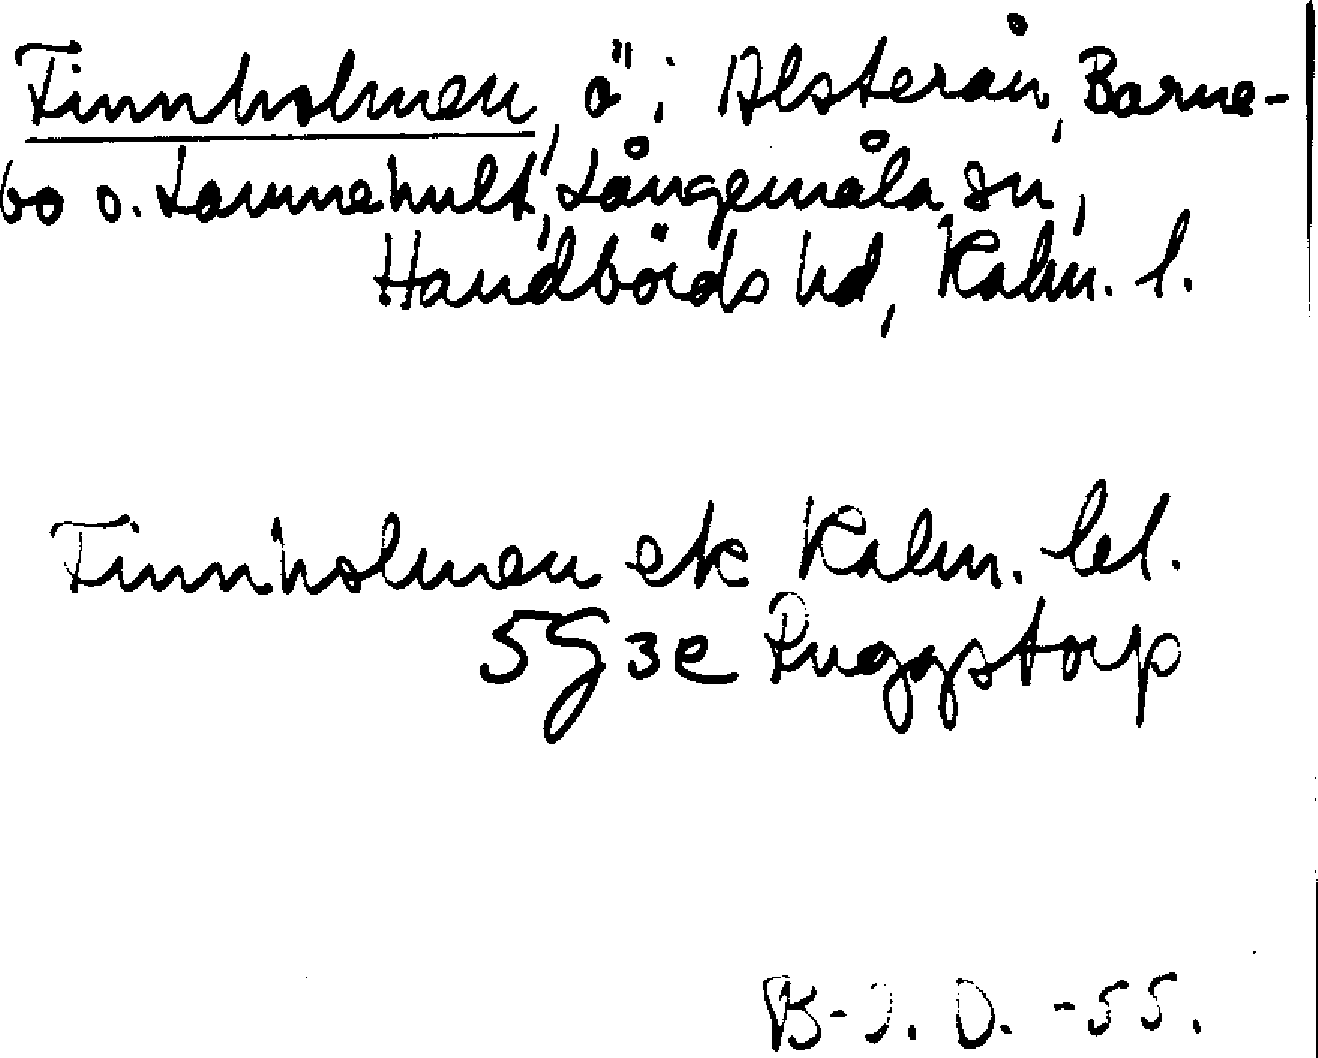 Finnholmen, ö i Alsterån, Barne-
bo o. Lammehult, Långemåla sn,
Handbörds hd, Kalm. l.
Finnholmen ek Kalm. lel.
5G3e Ruggstorp
B-J. D. -55.